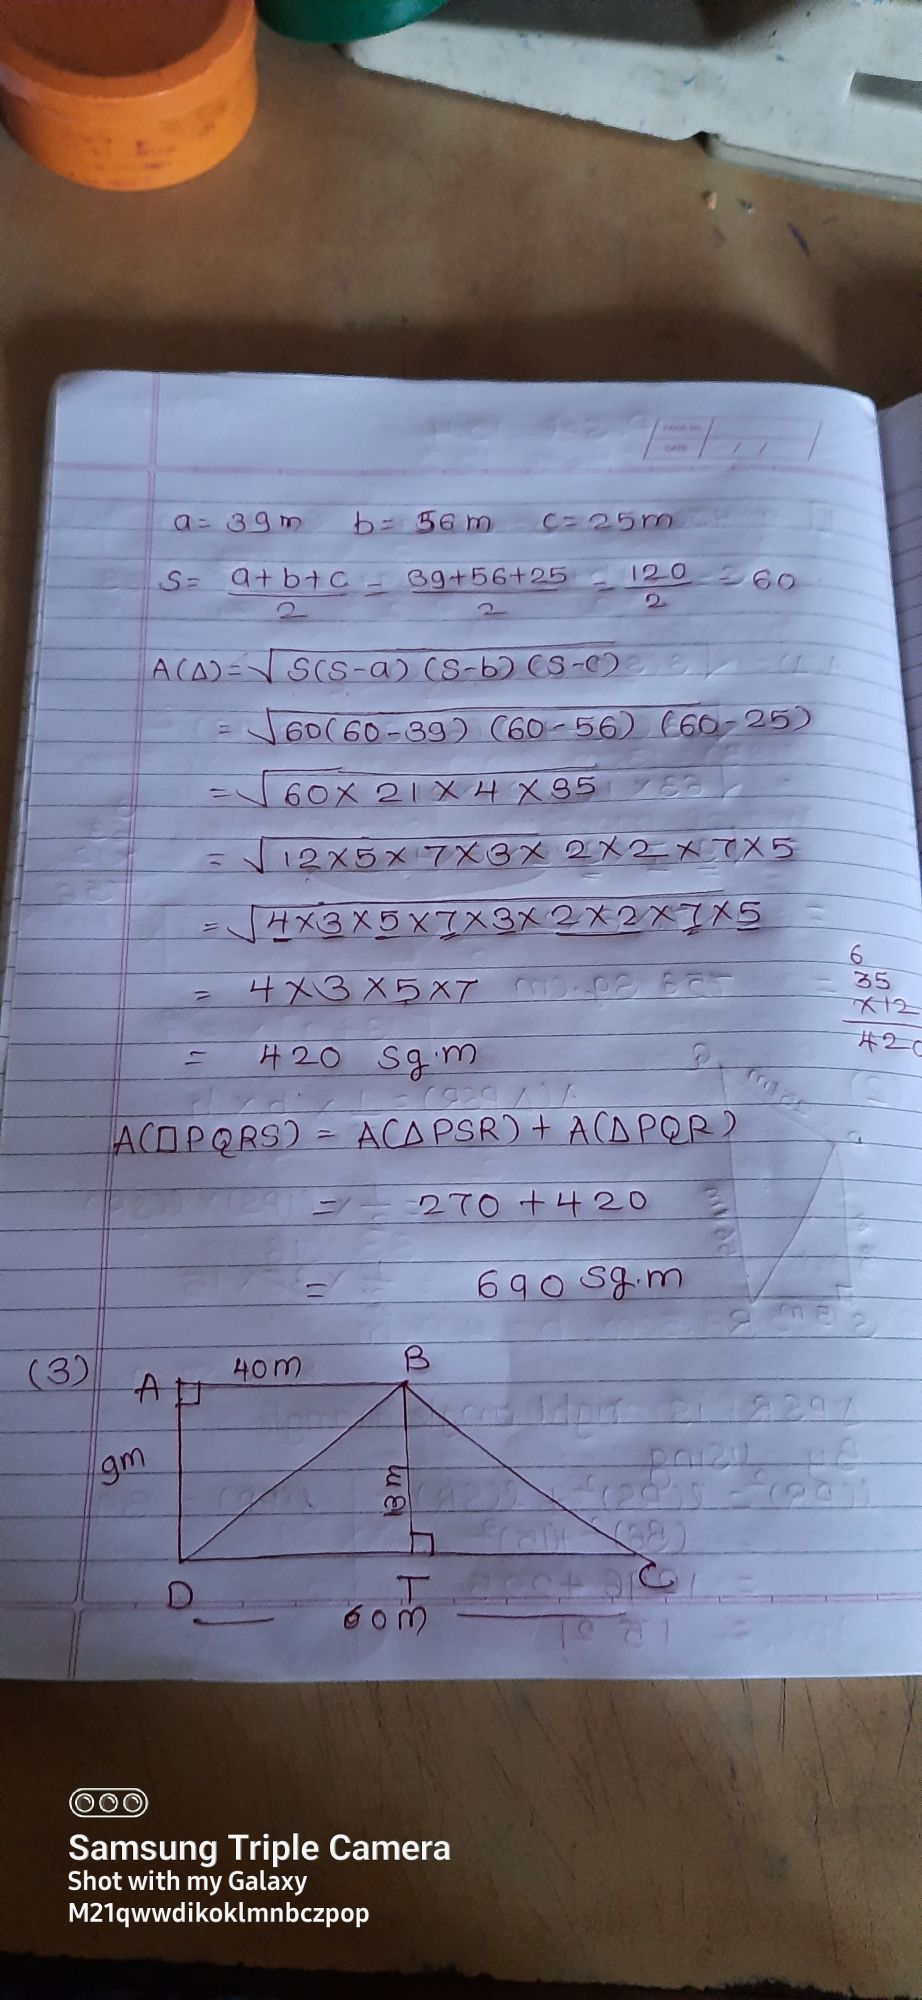 a = 39m b = 56m c = 25m
S = a+b+c/2 = 39+56+25/2 = 120/2 = 60
A(Δ) = √S(S-a) (S-b) (S-c)
= √60(60-39) (60-56) (60-25)
= √60 × 21 × 4 × 35
= √12×5×7×3×2×2×7×5
= √4×3×5×7×3×2×2×7×5
= 4×3×5×7
= 420 Sq.m
6
35
×12
420
A(□PQRS) = A(ΔPSR) + A(ΔPQR)
= 270 + 420
= 690 Sq.m
(3)
A 40m B
9m
13m
D T C
60m
Samsung Triple Camera
Shot with my Galaxy
M21qwwdikoklmnbczpop